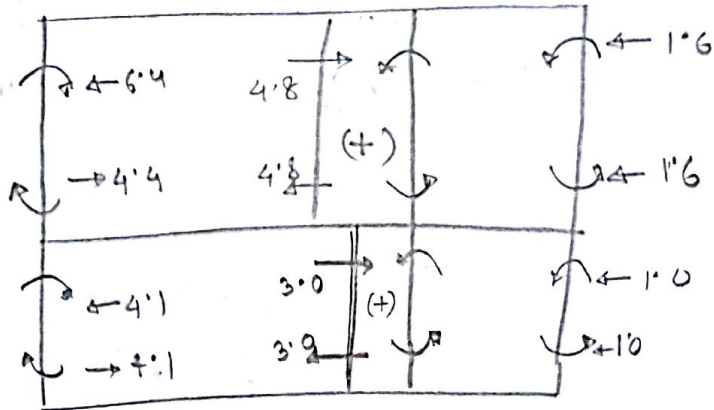 6.4 4.8 1.6
(+)
4.4 4.8 1.6
4.1 3.0 1.0
(+)
4.1 3.0 1.0